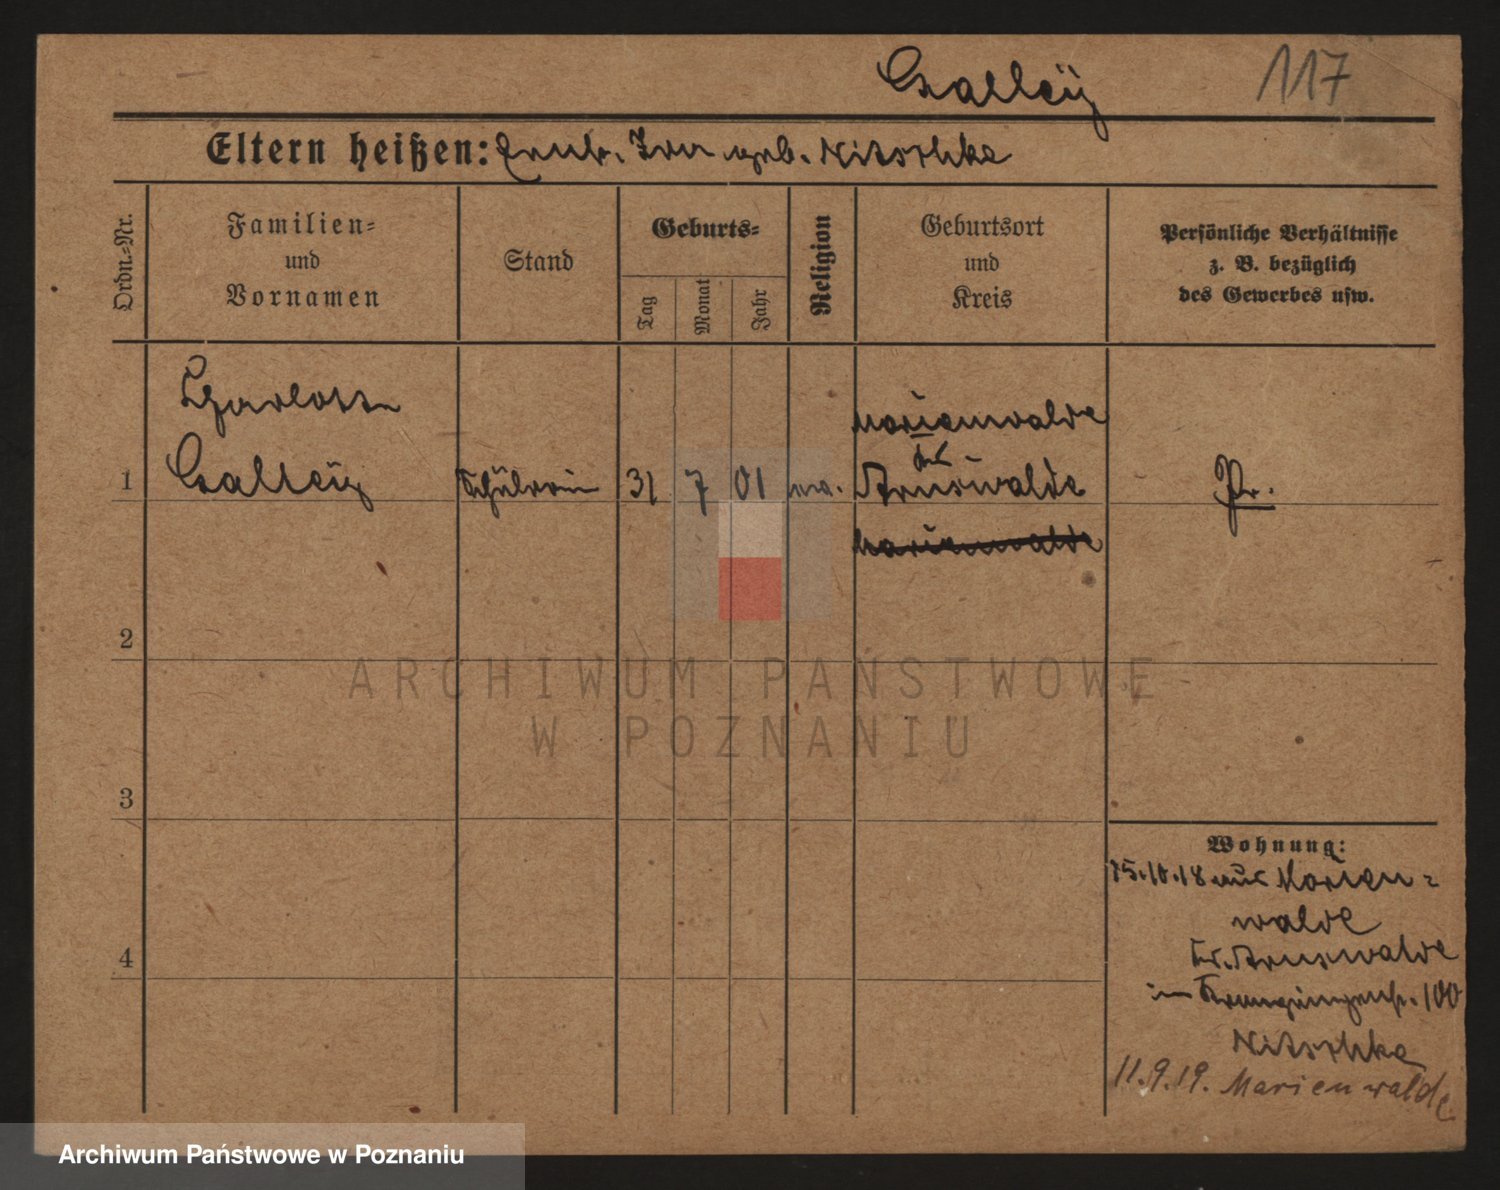 Csalleÿ 117
Eltern heißen: geb. Nitschke
Ordn.-Nr.
Familien-
und
Vornamen
Stand
Geburts-
Tag
Monat
Jahr
Religion
Geburtsort
und
Kreis
Persönliche Verhältnisse
z. B. bezüglich
des Gewerbes usw.
Charlotte
Marienwalde
Kr.
1 Csalleÿ Schülerin 31 7 01 Arnswalde Pr.
Marienwalde
2
3
4
Wohnung:
15.10.18 aus Marien=
walde
Kr. Arnswalde
100
Nitschke
11.9.19. Marienwalde
ARCHIWUM PAŃSTWOWE
W POZNANIU
Archiwum Państwowe w Poznaniu